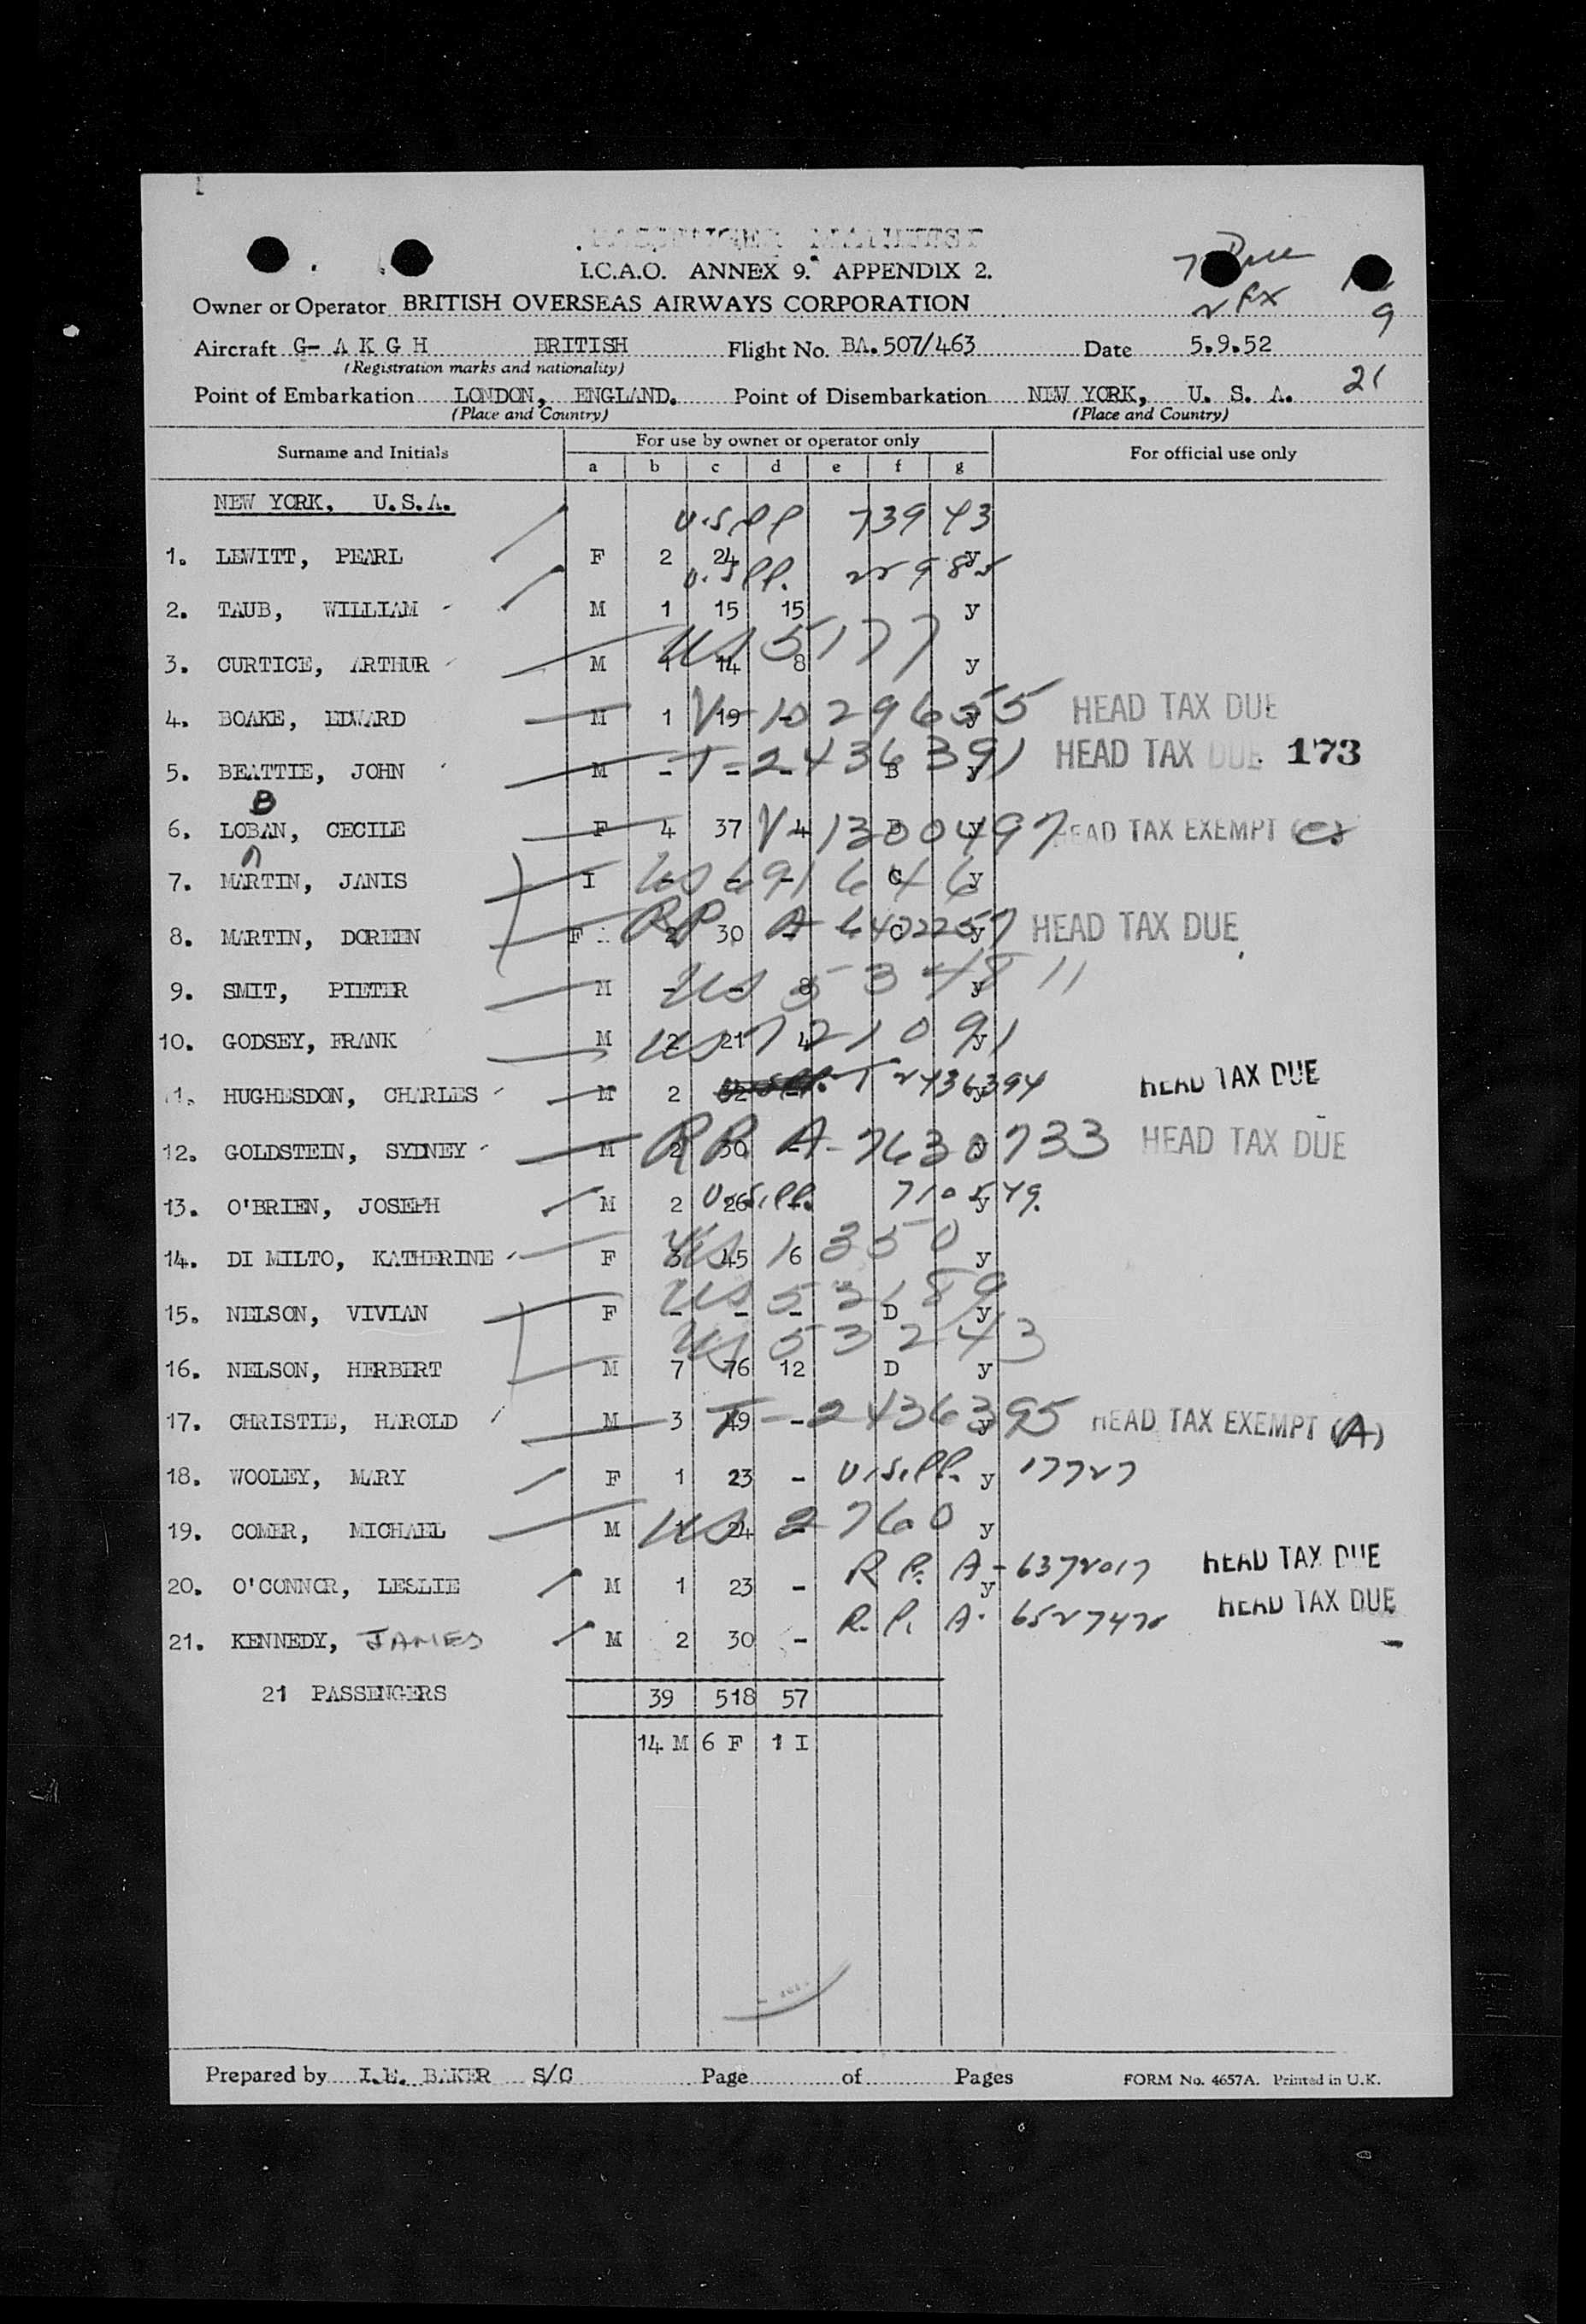 PASSENGER MANIFEST
I.C.A.O. ANNEX 9. APPENDIX 2.
7 Due
2 Ex
9
Owner or Operator BRITISH OVERSEAS AIRWAYS CORPORATION
Aircraft G- A K G H BRITISH Flight No. BA.507/463 Date 5.9.52
(Registration marks and nationality)
21
Point of Embarkation LONDON, ENGLAND. Point of Disembarkation NEW YORK, U. S. A.
(Place and Country) (Place and Country)
Surname and Initials For use by owner or operator only For official use only
a b c d e f g
NEW YORK, U.S.A.
U.S.PP 73943
1. LEWITT, PEARL F 2 24 y
U.S.PP. 22985
2. TAUB, WILLIAM M 1 15 15 y
US 5177
3. CURTICE, ARTHUR M 1 14 8 y
4. BOAKE, EDWARD M 1 19 - y V-1029655 HEAD TAX DUE
5. BEATTIE, JOHN M - - - B y T-2436391 HEAD TAX DUE 173
B
6. LOBAN, CECILE F 4 37 4 y V-1300497 HEAD TAX EXEMPT
7. MARTIN, JANIS I - - - C y US 691646
8. MARTIN, DOREEN F 2 30 - C y RP A-6402257 HEAD TAX DUE
9. SMIT, PIETER M - - 8 y US 534811
10. GODSEY, FRANK M 2 21 4 y US 721091
11. HUGHESDON, CHARLES M 2 - y T 2436394 HEAD TAX DUE
12. GOLDSTEIN, SYDNEY M 2 30 - y RP. A-7630733 HEAD TAX DUE
13. O'BRIEN, JOSEPH M 2 26 - y U.S.PP. 710549.
14. DI MILTO, KATHERINE F 3 45 6 y US 1350
15. NELSON, VIVIAN F - - - D y US 53189
US 53243
16. NELSON, HERBERT M 7 76 12 D y
17. CHRISTIE, HAROLD M 3 49 - y T-2436395 HEAD TAX EXEMPT (A)
18. WOOLEY, MARY F 1 23 - U.S.PP. y 17727
19. COMER, MICHAEL M 1 24 - y US 2760
R.P. A-6372017 HEAD TAX DUE
20. O'CONNOR, LESLIE M 1 23 - y
R.P. A. HEAD TAX DUE
21. KENNEDY, JAMES M 2 30 -
21 PASSENGERS 39 518 57
14 M 6 F 1 I
Prepared by I.E. BAKER S/C Page of Pages FORM No. 4657A. Printed in U.K.